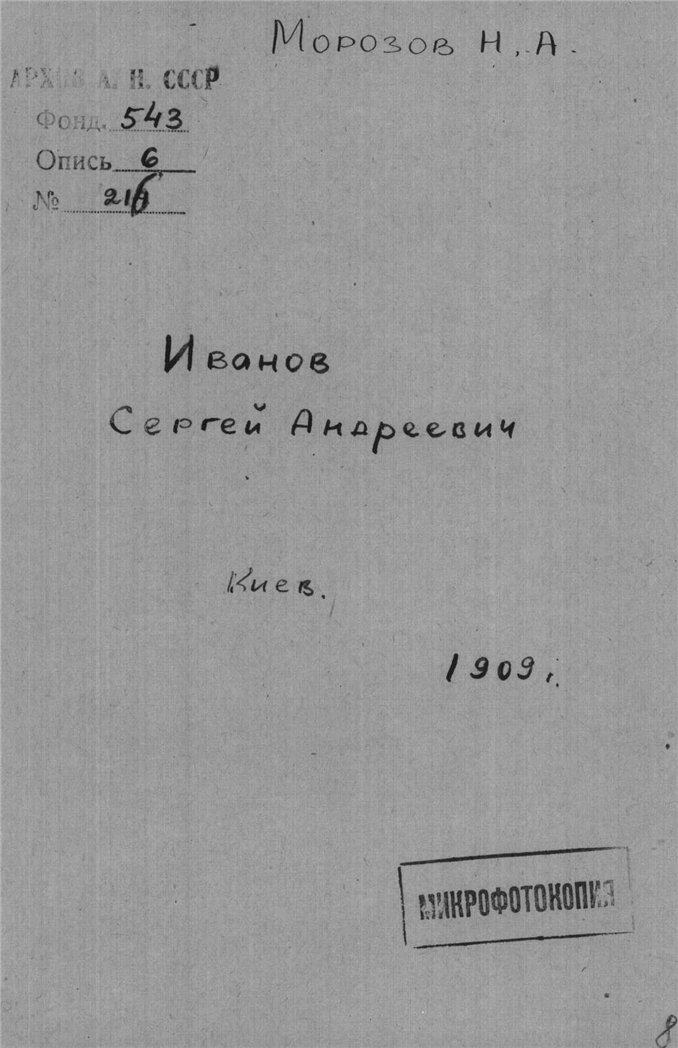 Морозов Н. А.
АРХИВ А. Н. СССР
Фонд. 543
Опись 6
№
Иванов
Сергей Андреевич
Киев.
1909 г.
МИКРОФОТОКОПИЯ
8